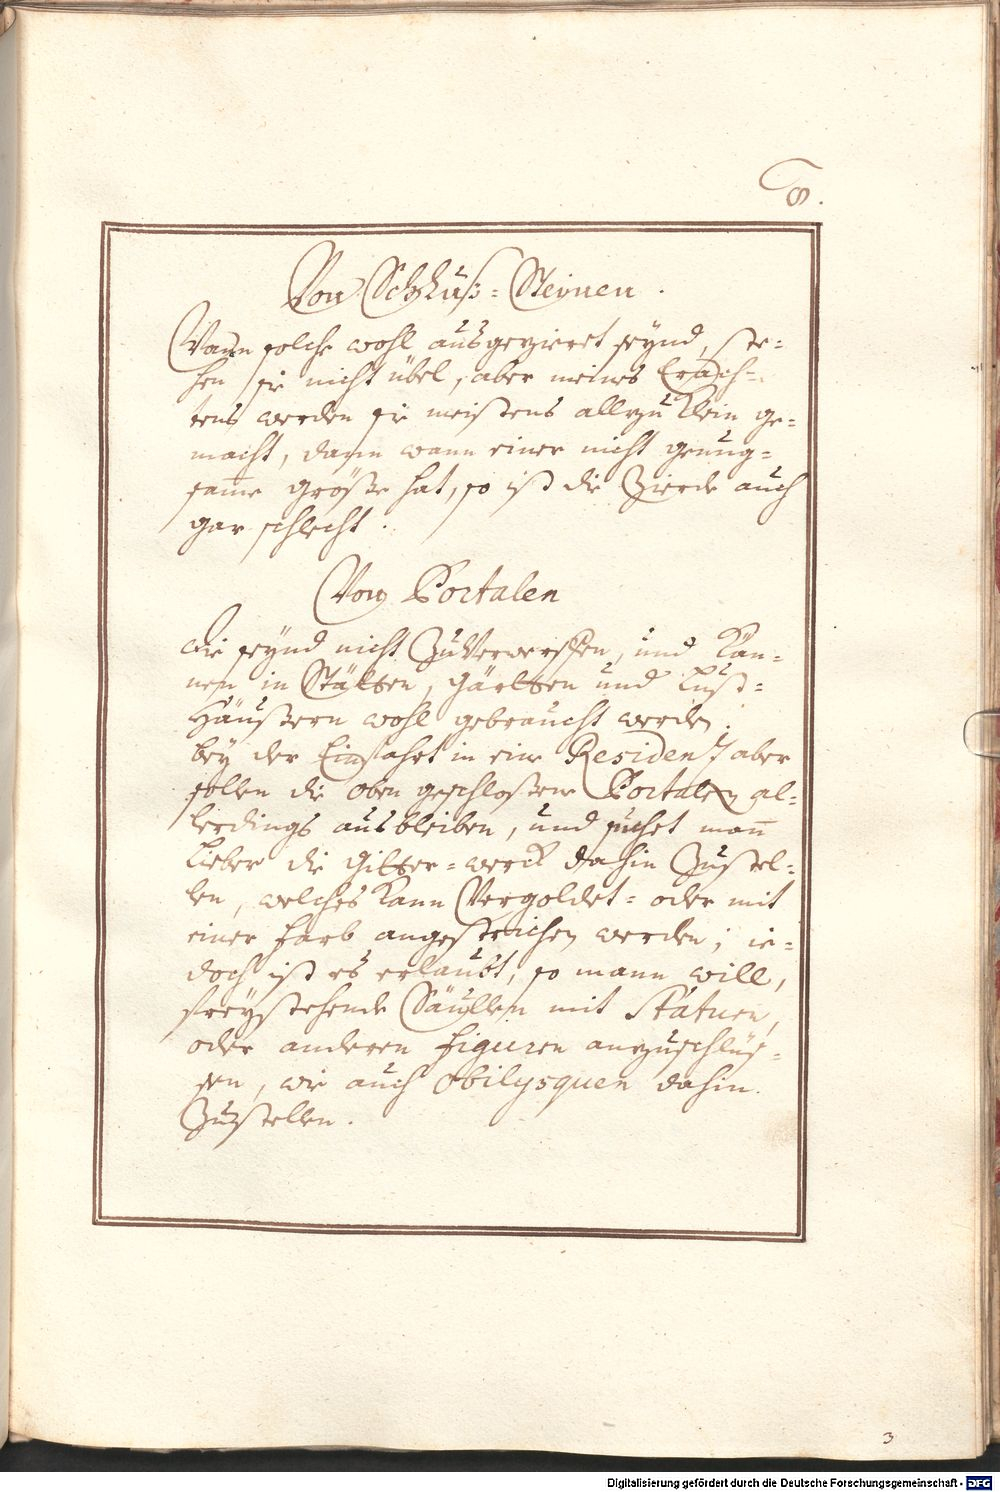 8.
Von Schluß-Steinen.
Wann solche wohl ausgezieret seynd, ste-
hen sie nicht übel, aber meines Erach-
tens werden sie meistens allzu Klein ge-
macht, dann wann einer nicht genug-
same größe hat, so ist die Zierde auch
gar schlecht.
Von Portalen
die seynd nicht Zu Verwerffen, und Kön-
nen in Stätten, Gärtten und Lust-
Häußern wohl gebraucht werden.
bey der Einfahrt in eine Residentz aber
sollen die oben geschloßene Portalen al-
lerdings ausbleiben, und suchet mann
Lieber die Gitter-werck dahin Zustel-
len, welches Kann Vergoldet- oder mit
einer Farb angestrichen werden; ie-
doch ist es erlaubt, so mann will,
freystehende Säullen mit Statuen,
oder anderen Figuren anzuschlüs-
sen, wie auch Obilysquen dahin
Zustellen.
3
Digitalisierung gefördert durch die Deutsche Forschungsgemeinschaft - DFG